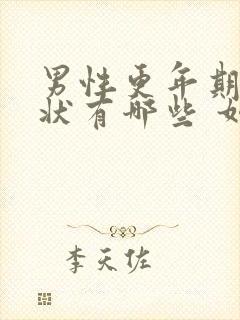 男性更年期
状有哪些 如
李天佐